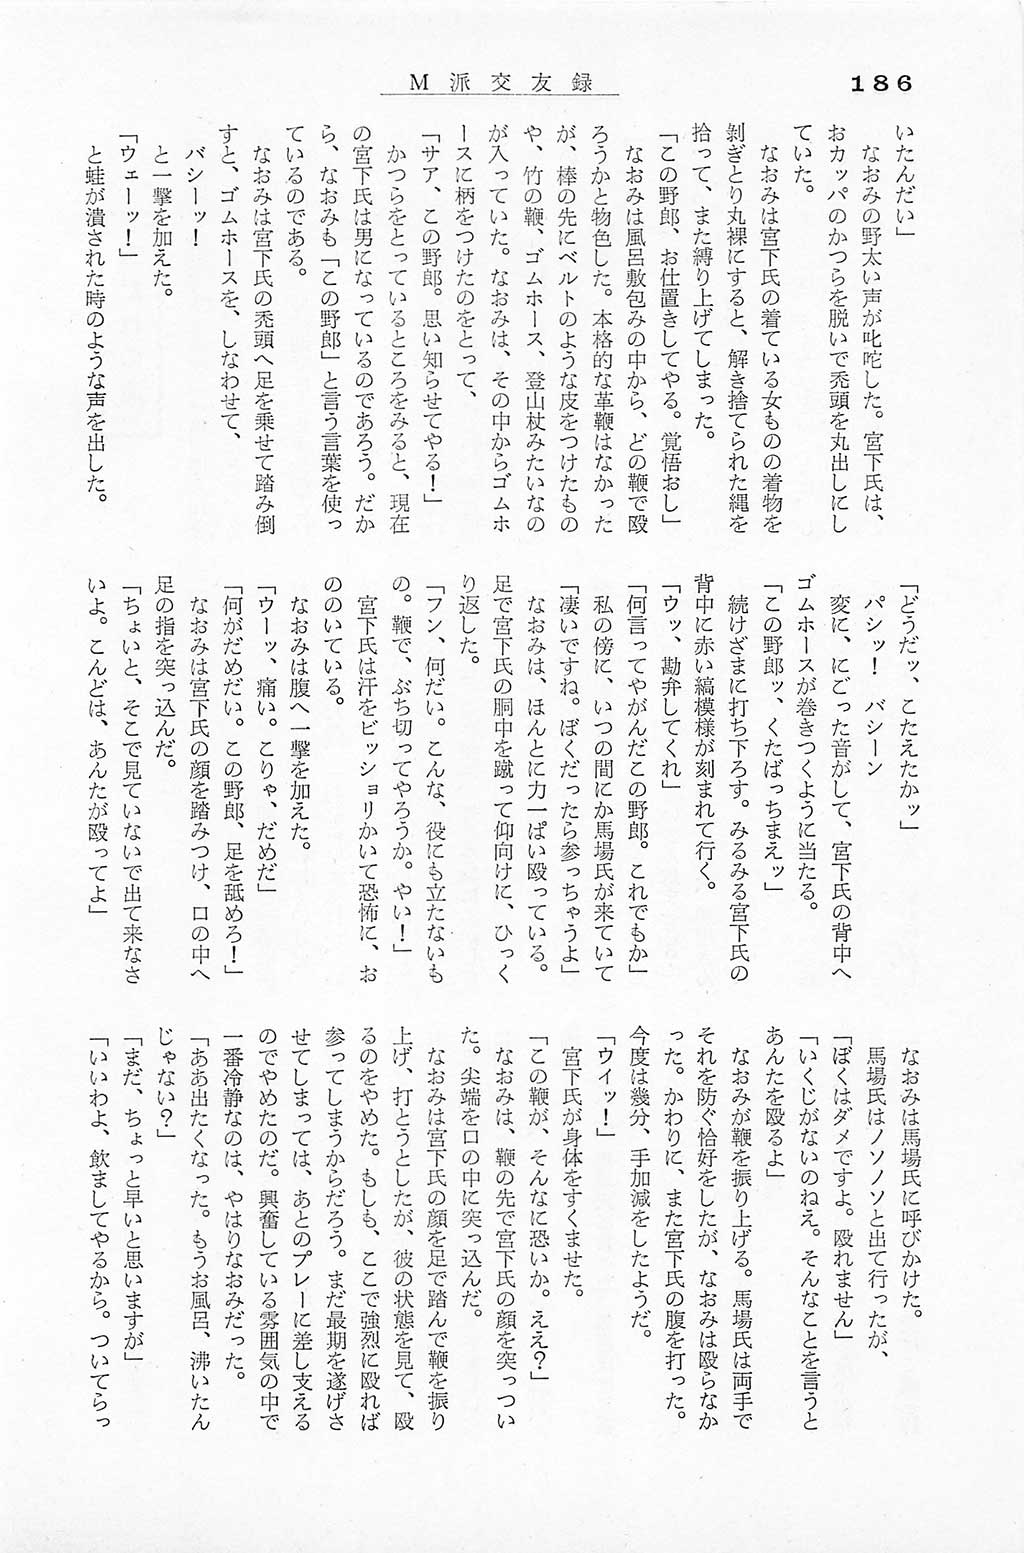 186
M派交友録
いたんだい」
なおみの野太い声が叱咤した。宮下氏は、
おカッパのかつらを脱いで禿頭を丸出しにし
ていた。
なおみは宮下氏の着ている女ものの着物を
剝ぎとり丸裸にすると、解き捨てられた縄を
拾って、また縛り上げてしまった。
「この野郎、お仕置きしてやる。覚悟おし」
なおみは風呂敷包みの中から、どの鞭で殴
ろうかと物色した。本格的な革鞭はなかった
が、棒の先にベルトのような皮をつけたもの
や、竹の鞭、ゴムホース、登山杖みたいなの
が入っていた。なおみは、その中からゴムホ
ースに柄をつけたのをとって、
「サア、この野郎。思い知らせてやる！」
かつらをとっているところをみると、現在
の宮下氏は男になっているのであろう。だか
ら、なおみも「この野郎」と言う言葉を使っ
ているのである。
なおみは宮下氏の禿頭へ足を乗せて踏み倒
すと、ゴムホースを、しなわせて、
バシーッ！
と一撃を加えた。
「ウェーッ！」
と蛙が潰された時のような声を出した。
「どうだッ、こたえたかッ」
パシッ！　バシーン
変に、にごった音がして、宮下氏の背中へ
ゴムホースが巻きつくように当たる。
「この野郎ッ、くたばっちまえッ」
続けざまに打ち下ろす。みるみる宮下氏の
背中に赤い縞模様が刻まれて行く。
「ウッ、勘弁してくれ」
「何言ってやがんだこの野郎。これでもか」
私の傍に、いつの間にか馬場氏が来ていて
「凄いですね。ぼくだったら参っちゃうよ」
なおみは、ほんとに力一ぱい殴っている。
足で宮下氏の胴中を蹴って仰向けに、ひっく
り返した。
「フン、何だい。こんな、役にも立たないも
の。鞭で、ぶち切ってやろうか。やい！」
宮下氏は汗をビッショリかいて恐怖に、お
ののいている。
なおみは腹へ一撃を加えた。
「ウーッ、痛い。こりゃ、だめだ」
「何がだめだい。この野郎、足を舐めろ！」
なおみは宮下氏の顔を踏みつけ、口の中へ
足の指を突っ込んだ。
「ちょいと、そこで見ていないで出て来なさ
いよ。こんどは、あんたが殴ってよ」
なおみは馬場氏に呼びかけた。
馬場氏はノソノソと出て行ったが、
「ぼくはダメですよ。殴れません」
「いくじがないのねえ。そんなことを言うと
あんたを殴るよ」
なおみが鞭を振り上げる。馬場氏は両手で
それを防ぐ恰好をしたが、なおみは殴らなか
った。かわりに、また宮下氏の腹を打った。
今度は幾分、手加減をしたようだ。
「ウイッ！」
宮下氏が身体をすくませた。
「この鞭が、そんなに恐いか。ええ？」
なおみは、鞭の先で宮下氏の顔を突っつい
た。尖端を口の中に突っ込んだ。
なおみは宮下氏の顔を足で踏んで鞭を振り
上げ、打とうとしたが、彼の状態を見て、殴
るのをやめた。もしも、ここで強烈に殴れば
参ってしまうからだろう。まだ最期を遂げさ
せてしまっては、あとのプレーに差し支える
のでやめたのだ。興奮している雰囲気の中で
一番冷静なのは、やはりなおみだった。
「ああ出たくなった。もうお風呂、沸いたん
じゃない？」
「まだ、ちょっと早いと思いますが」
「いいわよ、飲ましてやるから。ついてらっ